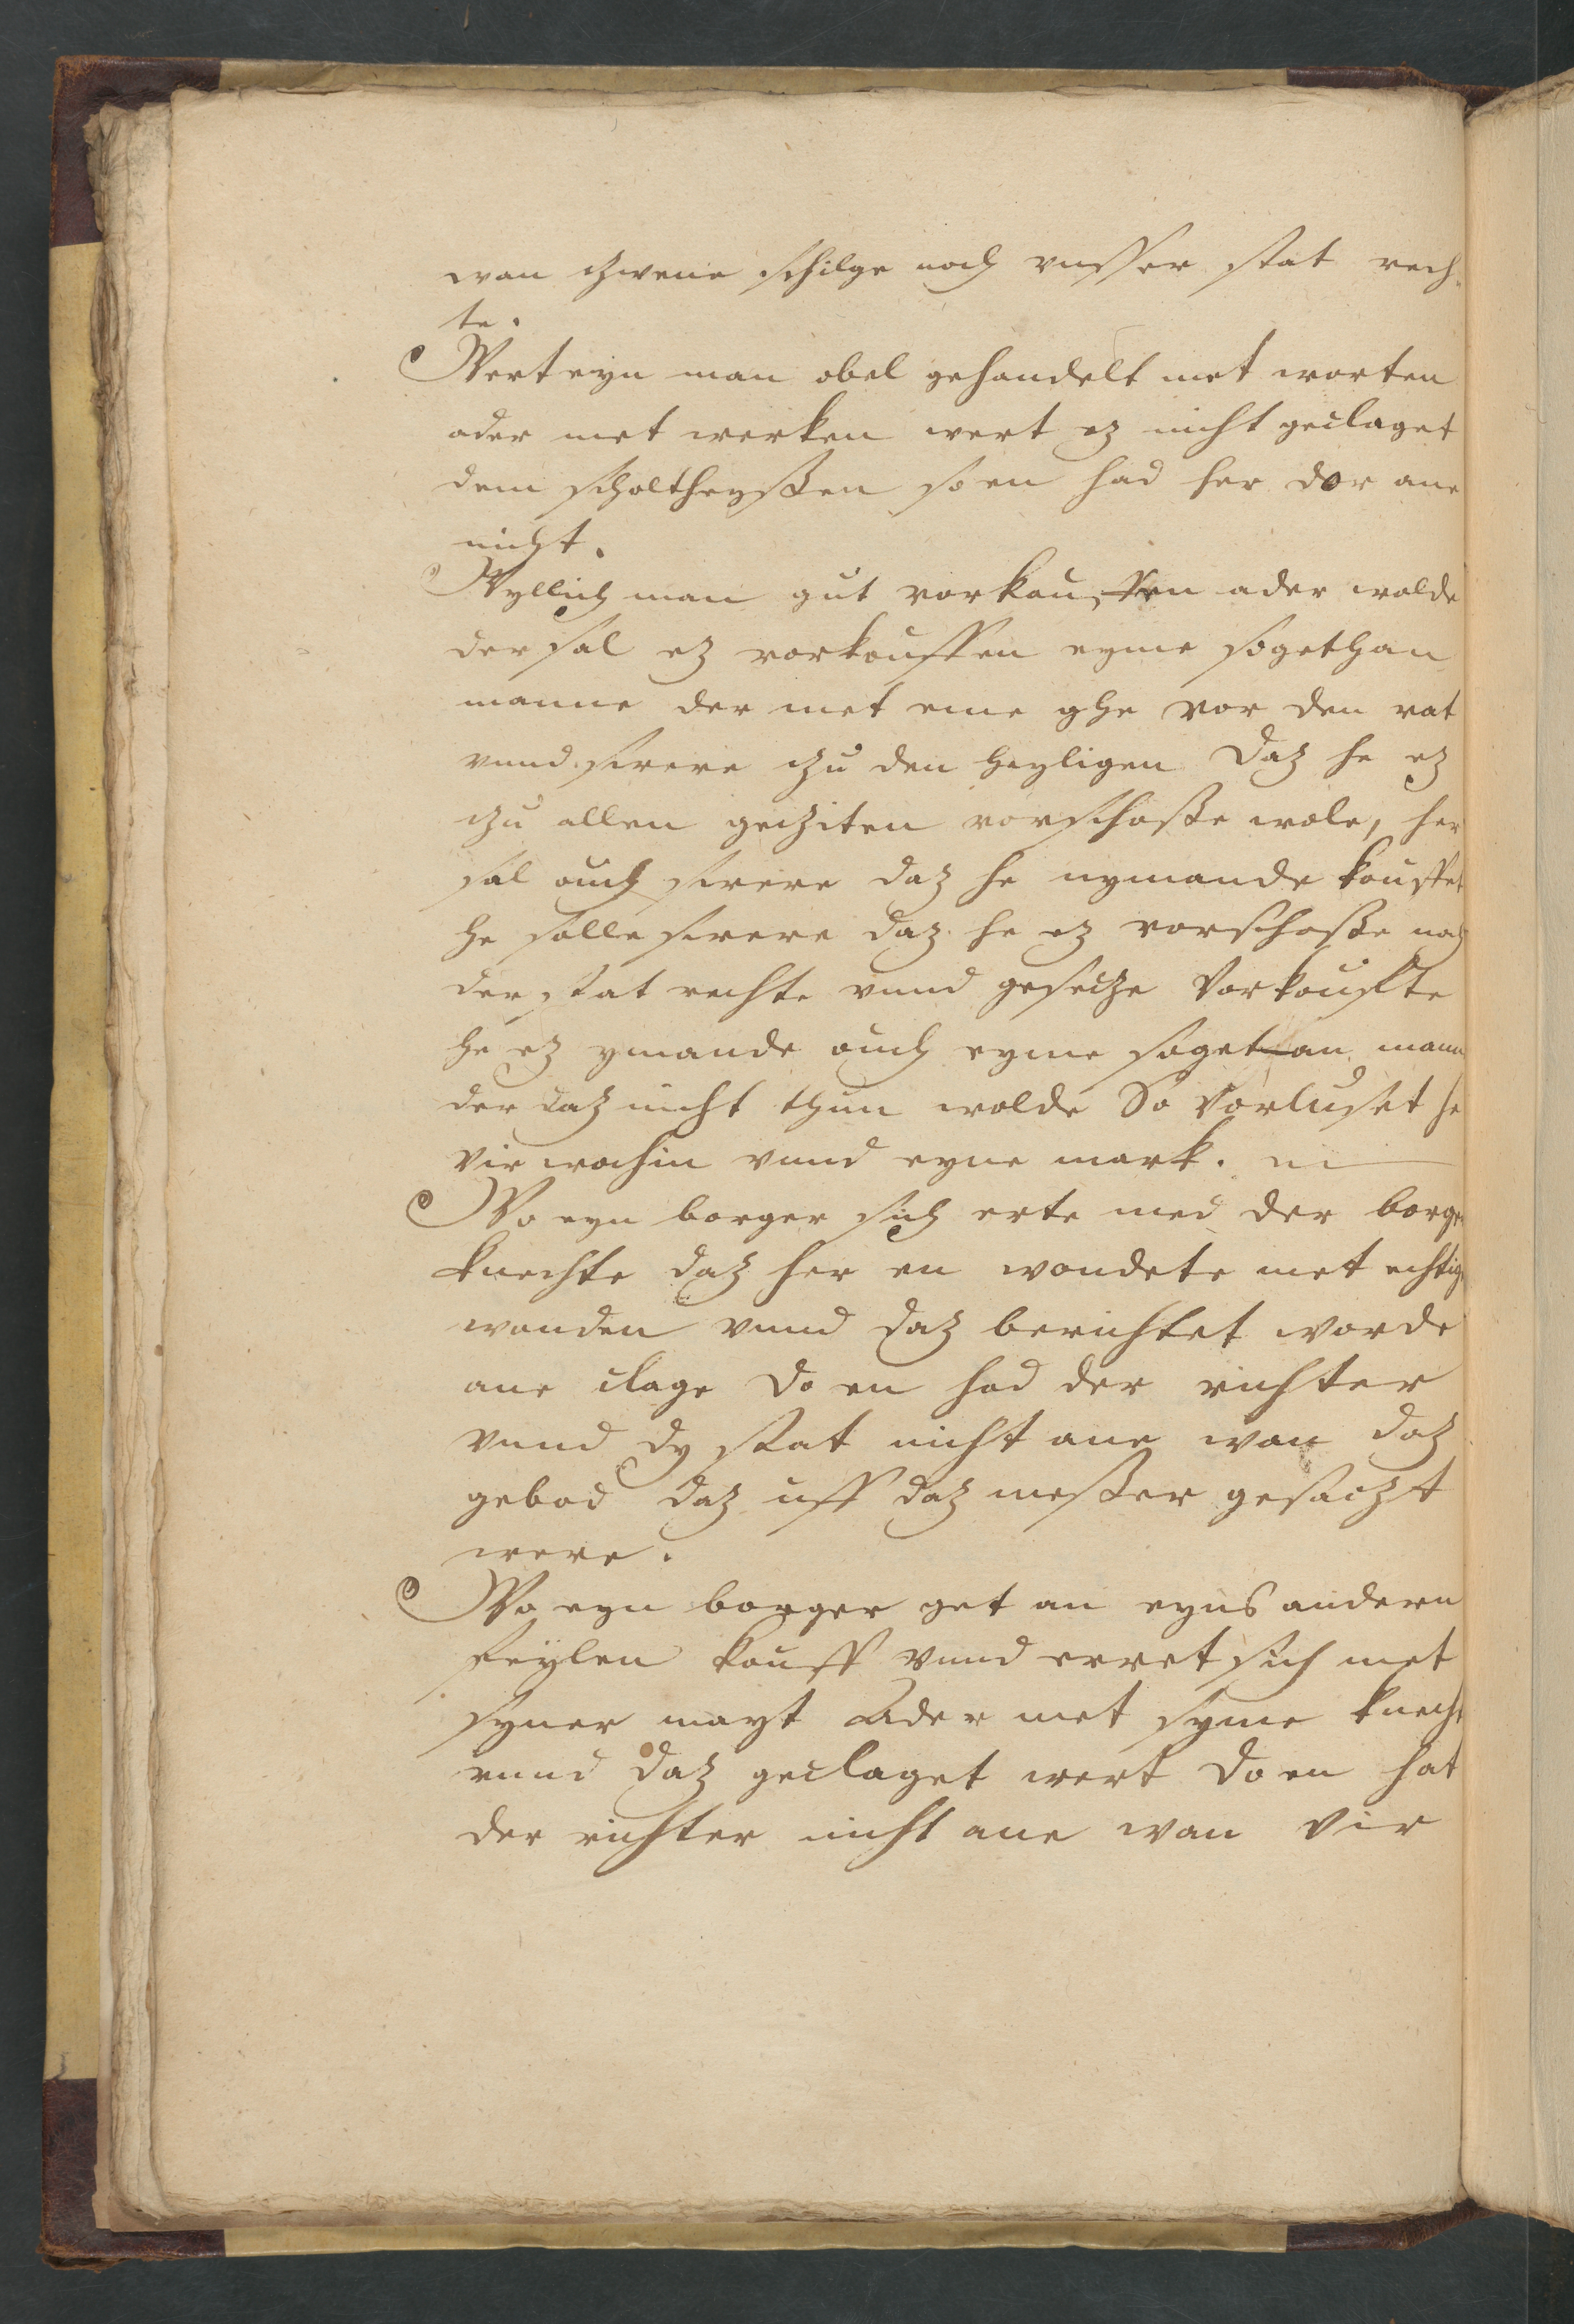 wan zcwene schilge noch unsser stat rech-
te.
Wert eyn man obel gehandelt met worten
ader met werken wert ez nicht geclaget
dem scholtheyssen so en had her dor ane
nicht.
Wyllich man gut vorkouffen ader wolde
der sal ez vorkouffen eyme sogethan
manne der met eme ghe vor den rat
vnnd swere zcu den heyligen Daz he ez
zcu allen geziten vorschosse wole, her
sal ouch swere daz he nymande kouffet
he solle swere daz he ez vorschosse noch
der stat rechte vnnd gesecze Vorkoufte
he ez ymande ouch eyme sogetan mann
der daz nicht thun wolde So vorluset he
vir wochin vnnd eyne mark.
Wo eyn borger sich erte med der borger
knechte daz her en wondete met echtig
wonden vnnd daz berichtet worde
ane clage do en had der richter
vnnd dy stat nicht ane wan daz
gebod daz uff daz messer gesaczt
were.
Wo eyn borger get an eyns andern
feylen kouff vnnd erret sich met
syner mayt Ader met syme knecht
vnnd daz geclaget wert do en hat
der richter nicht ane wan vir